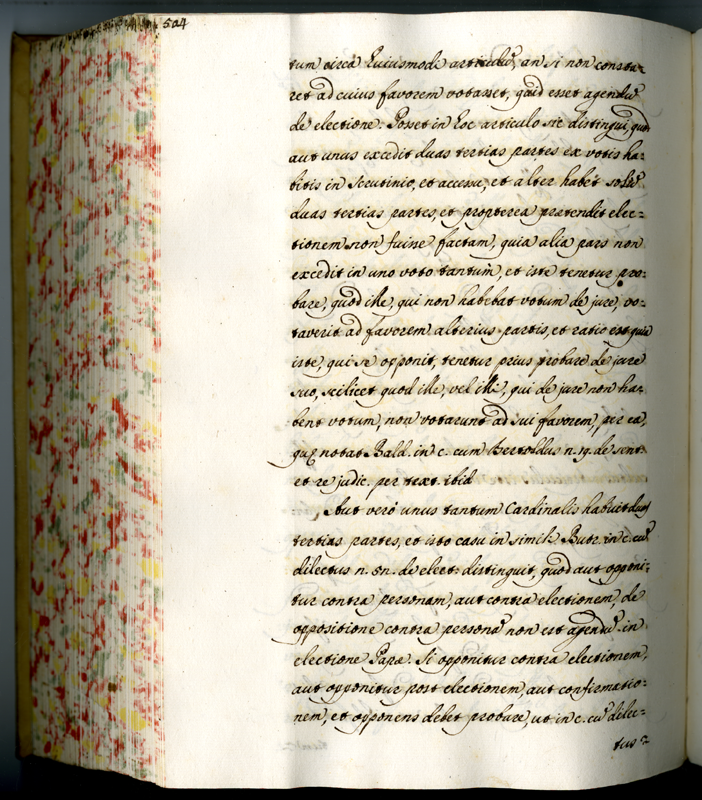 504
tum circa huiusmodi articulũ, an si non consta=
ret ad cuius favorem votasset, quid esset agendũ
de electione. Posset in hoc articulo sic distingui, quod
aut unus excedit duas tertias partes ex votis ha=
bitis in scrutinio, et accessu, et alter habet solũ
duas tertias partes, et propterea pratendit elec=
tionem non fuisse factam, quia alia pars non
excedit in uno voto tantum, et iste tenetur pro=
bare, quod ille, qui non habebat votum de jure, vo=
taverit ad favorem alterius partis, et ratio est quia
iste, qui sic opponit, tenetur prius probare de jure
suo, scilicet quod ille, vel illi, qui de jure non ha=
bent votum, non votarunt ad sui favorem, per ea,
quę notat Bald. in c. cum Bertoldus n. 19. de sent.
et re judic. per text. ibid
Aut veró unus tantum Cardinalis habuit duas
tertias partes, et isto casu in simili Butr. in c. cũ
dilectus n. 5n. de elect. distinguit, quod aut opponi=
tur contra personam, aut contra electionem, de
oppositione contra personã non est agendũ in
electione Papæ. Si opponitur contra electionem,
aut opponitur post electionem, aut confirmatio=
nem, et opponens debet probare, ut in c. cũ dilec=
tus